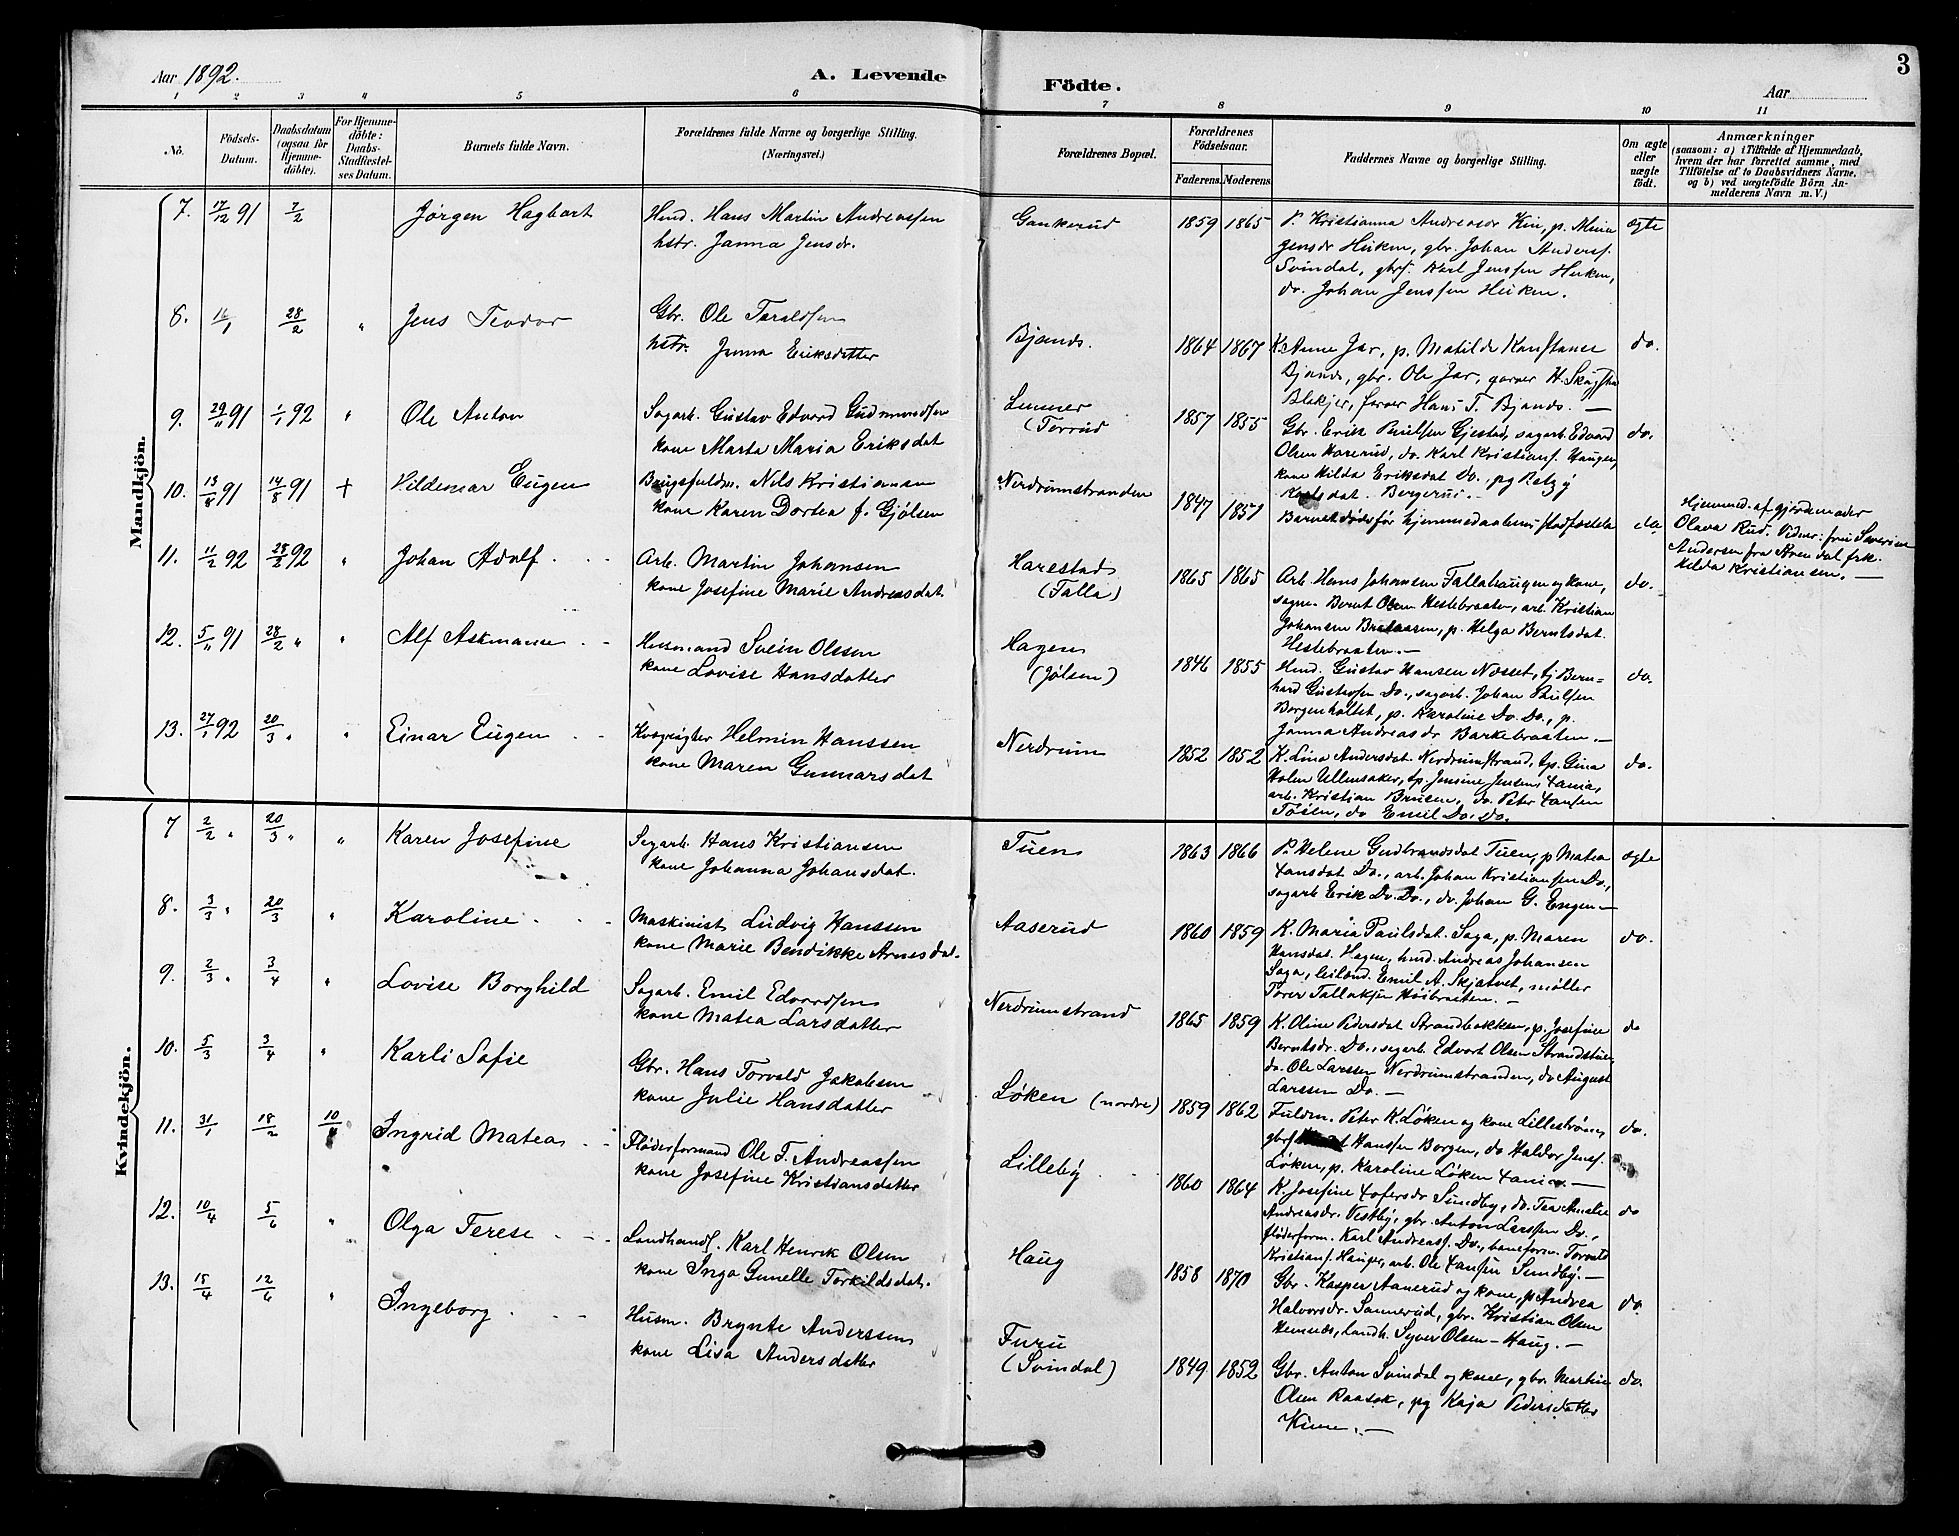 Aar 1892.
A. Levende
Födte.
Aar
3
1 2 3 4 5 6 7 8 9 10 11
No.
Födsels-
Datum.
Daabsdatum
(ogsaa for
Hjemme-
döbte).
For Hjemme-
döbte:
Daabs-
Stadfæstel-
ses Datum.
Barnets fulde Navn.
Forældrenes fulde Navne og borgerlige Stilling.
(Næringsvei.)
Forældrenes Bopæl.
Forældrenes
Födselsaar.
Faderens. Moderens.
Faddernes Navne og borgerlige Stilling.
Om ægte
eller
uægte
födt.
Anmærkninger
(saasom: a) i Tilfælde af Hjemmedaab,
hvem der har forrettet samme, med
Tilföielse af to Daabsvidners Navne,
og b) ved uægtefödte Börn An-
melderens Navn m. V.)
Mandkjön.
7. 17/12 91 7/2 Jørgen Hagbart
Hmd. Hans Martin Andreassen
hstr. Janna Jensdr.
Gankerud 1859 1865
P. Kristianna Andreasdr Kin, p. Mina
Jensdr Huken, gbr. Johan Anderss.
Svindal, gbrs. Karl Jenssen Huken,
do. Johan Jenssen Huken.
ægte
8. 16/1 28/2 " Jens Teodor
Gbr. Ole Taraldsen
hstr. Jenna Eriksdatter
Bjands. 1864 1867
K. Anne Jar, p. Matilde Konstance
Bjands, gbr. Ole Jar, garver H.
Blekjer, farver Hans T. Bjands. —
do.
9. 29/11 91 1/1 92 " Ole Anton
Sagarb. Gustav Edvard Gudmundsen
kone Marta Maria Eriksdat
Linner
(Torrud 1857 1855
Gbr. Erik Paulsen Gjestad, sagarb. Edvard
Olsen Harerud, do. Karl Kristians. Haugen,
kone Hilda Eriksdat Do., pg Betzy
Karlsdat. Borgerud. —
do.
10. 13/8 91 14/8 91 + Hildemar Eugen
Brugsfuldm. Nils Kristiansen
kone Karen Dortea f. Gjølsen
Nerdrumstranden 1847 1851
Barnet döde för hjemmedaabens stadfæstelse
do
Hjemmed. af gjordemoder
Olava Rud. Vidner: fru Severine
Andersen fra Arendal frk.
Hilda Kristiansen. —
11. 11/2 92 28/2 92 " Johan Adolf
Arb. Martin Johansen
kone Josefine Marie Andreasdat.
Harestad
(Talla) 1865 1865
Arb. Hans Johansen Tallahaugen og kone,
sagm. Bernt Olsen Hestebraaten, arb. Kristian
Johansen Brataasen, p. Helga Berntsdat.
Hestebraaten. —
do.
12. 5/11 91 28/2 " " Alf Askmann
Husmand Svein Olssen
kone Lovise Hansdatter
Hagen
(Jølsen) 1846 1855
Hmd. Gustav Hansen Næset, tj Bern=
hard Gustafsen Do., sagarb. Johan Paulsen
Borgenholtet, p. Karoline Do. Do., p.
Janna Andreasdr Barkebraaten. —
do.
13. 27/1 92 20/3 " " Einar Eugen
Kvægrøgter Helmin Hanssen
kone Maren Gunnarsdat
Nerdrum 1852 1852
K. Lina Andersdat. Nerdrumstrand, tp. Gina
Holm Ullensaker, tp. Jensine Jensen, Fania,
arb. Kristian Brusen, do. Peter Hansen
Töien, do Emil Do. Do.
do.
Kvindekjön.
7 2/2 " 20/3 " " Karen Josefine
Sagarb. Hans Kristiansen
kone Johanna Johansdat.
Tuen 1863 1866
P. Helene Gudbrandsdat Tuen, p Matea
Hansdat Do., arb. Johan Kristiansen Do.,
sagarb Erik Do. Do., do. Johan G. Engen —
ægte
8. 3/3 " 20/3 " Karoline
Maskinist Ludvig Hanssen
kone Marie Bendikke Arnesdat.
Aaserud 1860 1859
K. Maria Paulsdat. Saga, p. Maren
Hansdat. Hagen, hmd. Andreas Johansen
Saga, leilænd. Emil A. Skjatvet, møller
Torer Tallaksen Høibraaten. —
do.
9. 2/3 " 3/4 " Lovise Borghild
Sagarb. Emil Edvardsen
kone Matea Larsdatter
Nerdrumstrand 1865 1859
K. Oline Pedersdat Strandbakken, p. Josefine
Berntsdr. Do., sagarb. Edvart Olsen Strandstuen,
do. Ole Larssen Nerdrumstranden, do August
Larssen Do. —
do
10. 5/3 3/4 " Karli Sofie
Gbr. Hans Torvald Jakobsen
kone Julie Hansdatter
Løken (nordre) 1859 1862
Fuldm. Peter K. Løken og kone Lillestrøm,
gbrs Hanssen Borgen, do Haldor Jenss.
Løken, p. Karoline Løken Fania. —
do.
11. 31/1 18/2 10/ Ingrid Matea
Fløderformand Ole T. Andreassen
kone Josefine Kristiansdatter
Lilleby 1860 1864
K. Josefine Tofersdr Sundby, do. Tea Amalie
Andreasdr. Vestby, gbr. Anton Larssen Do.,
fløderform. Karl Andreass. Do., baneform. Torvald
Kristians. Haugen, arb. Ole Hansen Sundby. —
do
12. 10/4 5/6 " Olga Terese
Landhandl. Karl Henrik Olsen
kone Inga Gunelle Torkildsdat.
Haug 1858 1870
Gbr. Kasper Aanerud og kone, p. Andrea
Halvorsdr. Sannerud, gbr. Kristian Olsen
Hemsed, landh. Syver Olsen — Haug. —
do
13. 15/4 12/6 " Ingeborg
Husm. Brynte Anderssen
kone Lisa Andersdatter
Furu
(Svindal) 1849 1852
Gbr. Anton Svindal og kone, gbr. Martin
Olsen Raasok, pg Kaja Pedersdatter
Kinne. —
do.